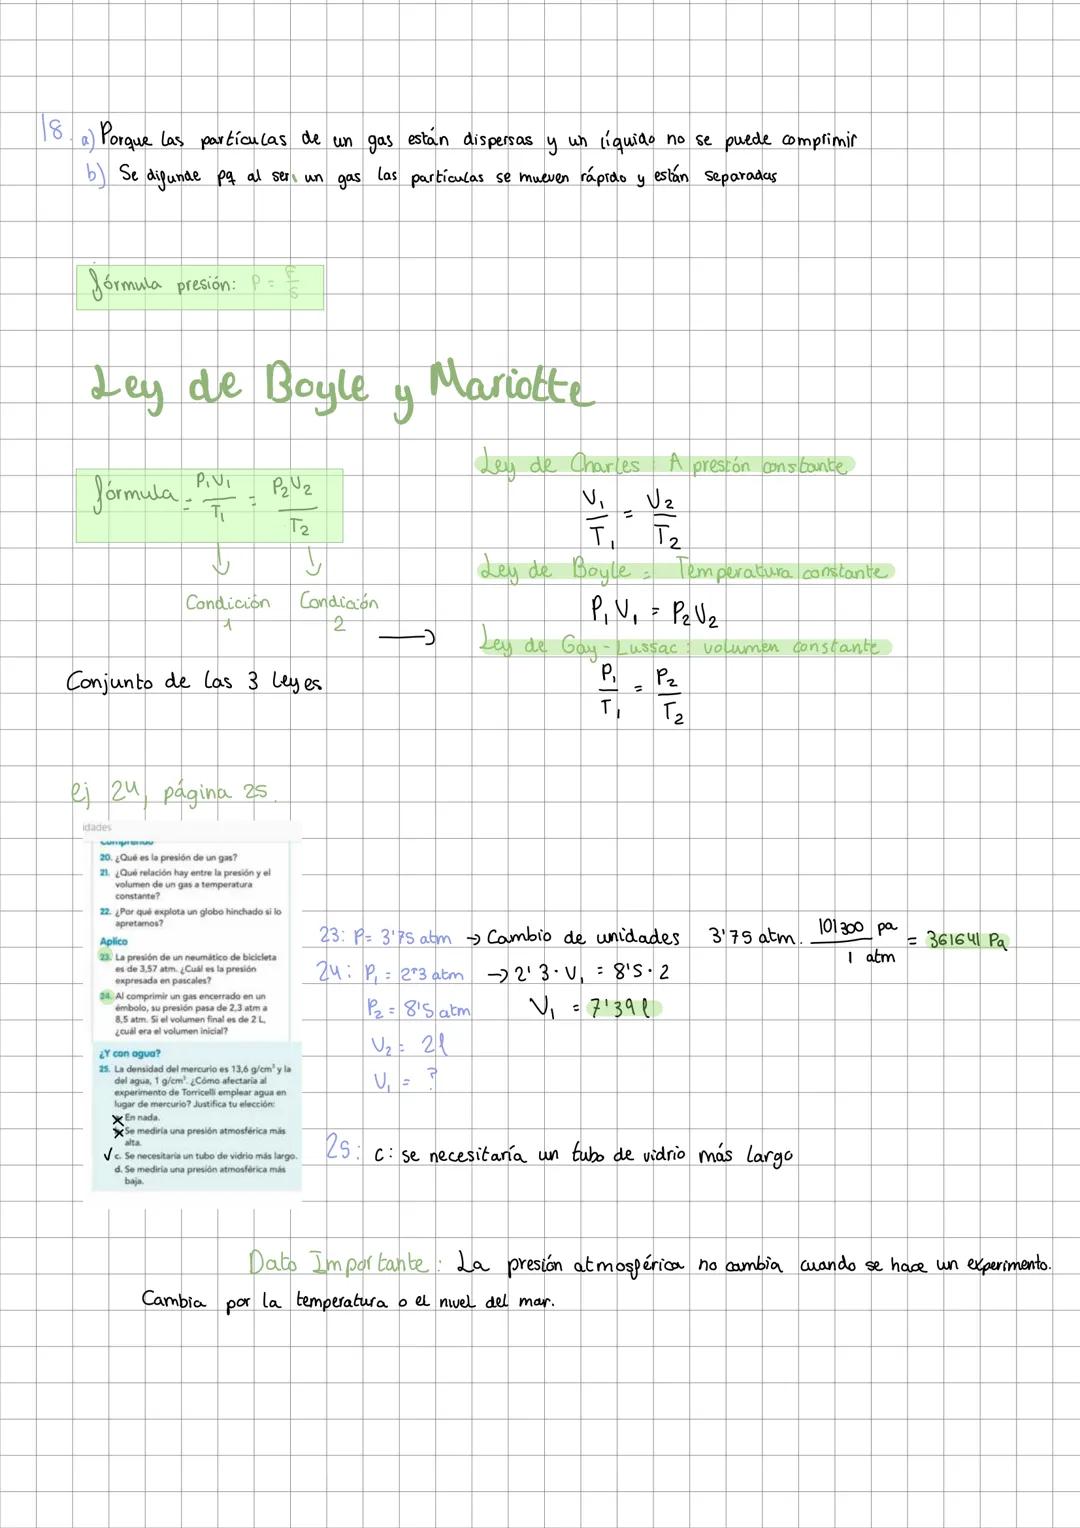 18. a) Porque las partículas de un gas están dispersas y un líquido no se puede comprimir
b) Se difunde pq al ser un gas las partículas se mueven rápido y están separadas
fórmula presión: P = F/S
Ley de Boyle y Mariotte
fórmula = P₁V₁/T₁ = P₂V₂/T₂
↓ ↓
Condición 1 Condición 2
→
Conjunto de las 3 leyes
Ley de Charles: A presión constante
V₁/T₁ = V₂/T₂
Ley de Boyle = Temperatura constante
P₁V₁ = P₂V₂
Ley de Gay-Lussac: volumen constante
P₁/T₁ = P₂/T₂
ej 24, página 25.
idades
Comprendo
20. ¿Qué es la presión de un gas?
21. ¿Qué relación hay entre la presión y el
volumen de un gas a temperatura
constante?
22. ¿Por qué explota un globo hinchado si lo
apretamos?
Aplico
23. La presión de un neumático de bicicleta
es de 3,57 atm. ¿Cuál es la presión
expresada en pascales?
24. Al comprimir un gas encerrado en un
émbolo, su presión pasa de 2,3 atm a
8,5 atm. Si el volumen final es de 2 L,
¿cuál era el volumen inicial?
¿Y con agua?
25. La densidad del mercurio es 13,6 g/cm³ y la
del agua, 1 g/cm³. ¿Cómo afectaría al
experimento de Torricelli emplear agua en
lugar de mercurio? Justifica tu elección:
En nada.
Se mediría una presión atmosférica más
alta.
c. Se necesitaría un tubo de vidrio más largo.
d. Se mediría una presión atmosférica más
baja.
23: P= 3'75 atm → Cambio de unidades 3'75 atm. 101300 pa / 1 atm = 361641 Pa
24: P₁ = 2'3 atm → 2'3 · V₁ = 8'5 · 2
P₂ = 8'5 atm V₁ = 7'39 l
V₂ = 2l
V₁ = ?
25: c: se necesitaría un tubo de vidrio más largo
Dato Importante: La presión atmosférica no cambia cuando se hace un experimento.
Cambia por la temperatura o el nivel del mar.